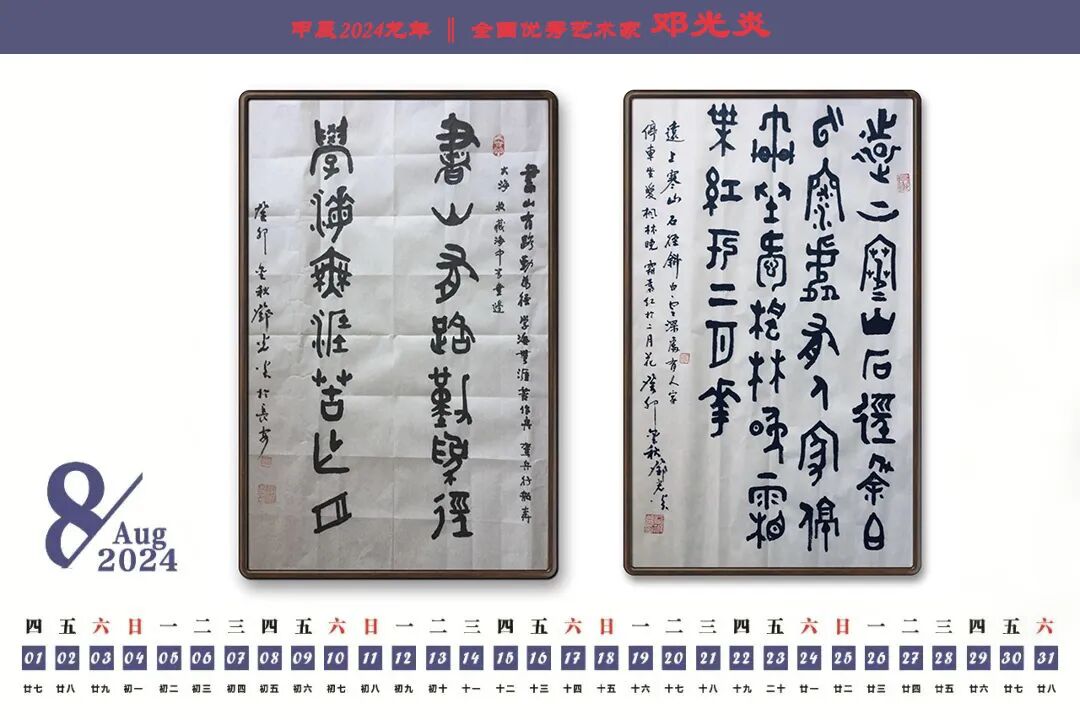 甲辰2024龙年 ‖ 全国优秀艺术家 邓光炎
書山有路勤為徑 学海無涯苦作舟
書山有路勤為徑
學海無涯苦作舟
癸卯金秋鄧光炎於長安
遠上寒山石徑斜白
雲深處有人家停
車坐愛楓林晚霜
葉紅於二月花
遠上寒山石徑斜白雲深處有人家
停車坐愛楓林晚霜葉红於二月花癸卯金秋鄧光炎
8/Aug
2024
四 五 六 日 一 二 三 四 五 六 日 一 二 三 四 五 六 日 一 二 三 四 五 六 日 一 二 三 四 五 六
01 02 03 04 05 06 07 08 09 10 11 12 13 14 15 16 17 18 19 20 21 22 23 24 25 26 27 28 29 30 31
廿七 廿八 廿九 初一 初二 初三 初四 初五 初六 初七 初八 初九 初十 十一 十二 十三 十四 十五 十六 十七 十八 十九 二十 廿一 廿二 廿三 廿四 廿五 廿六 廿七 廿八